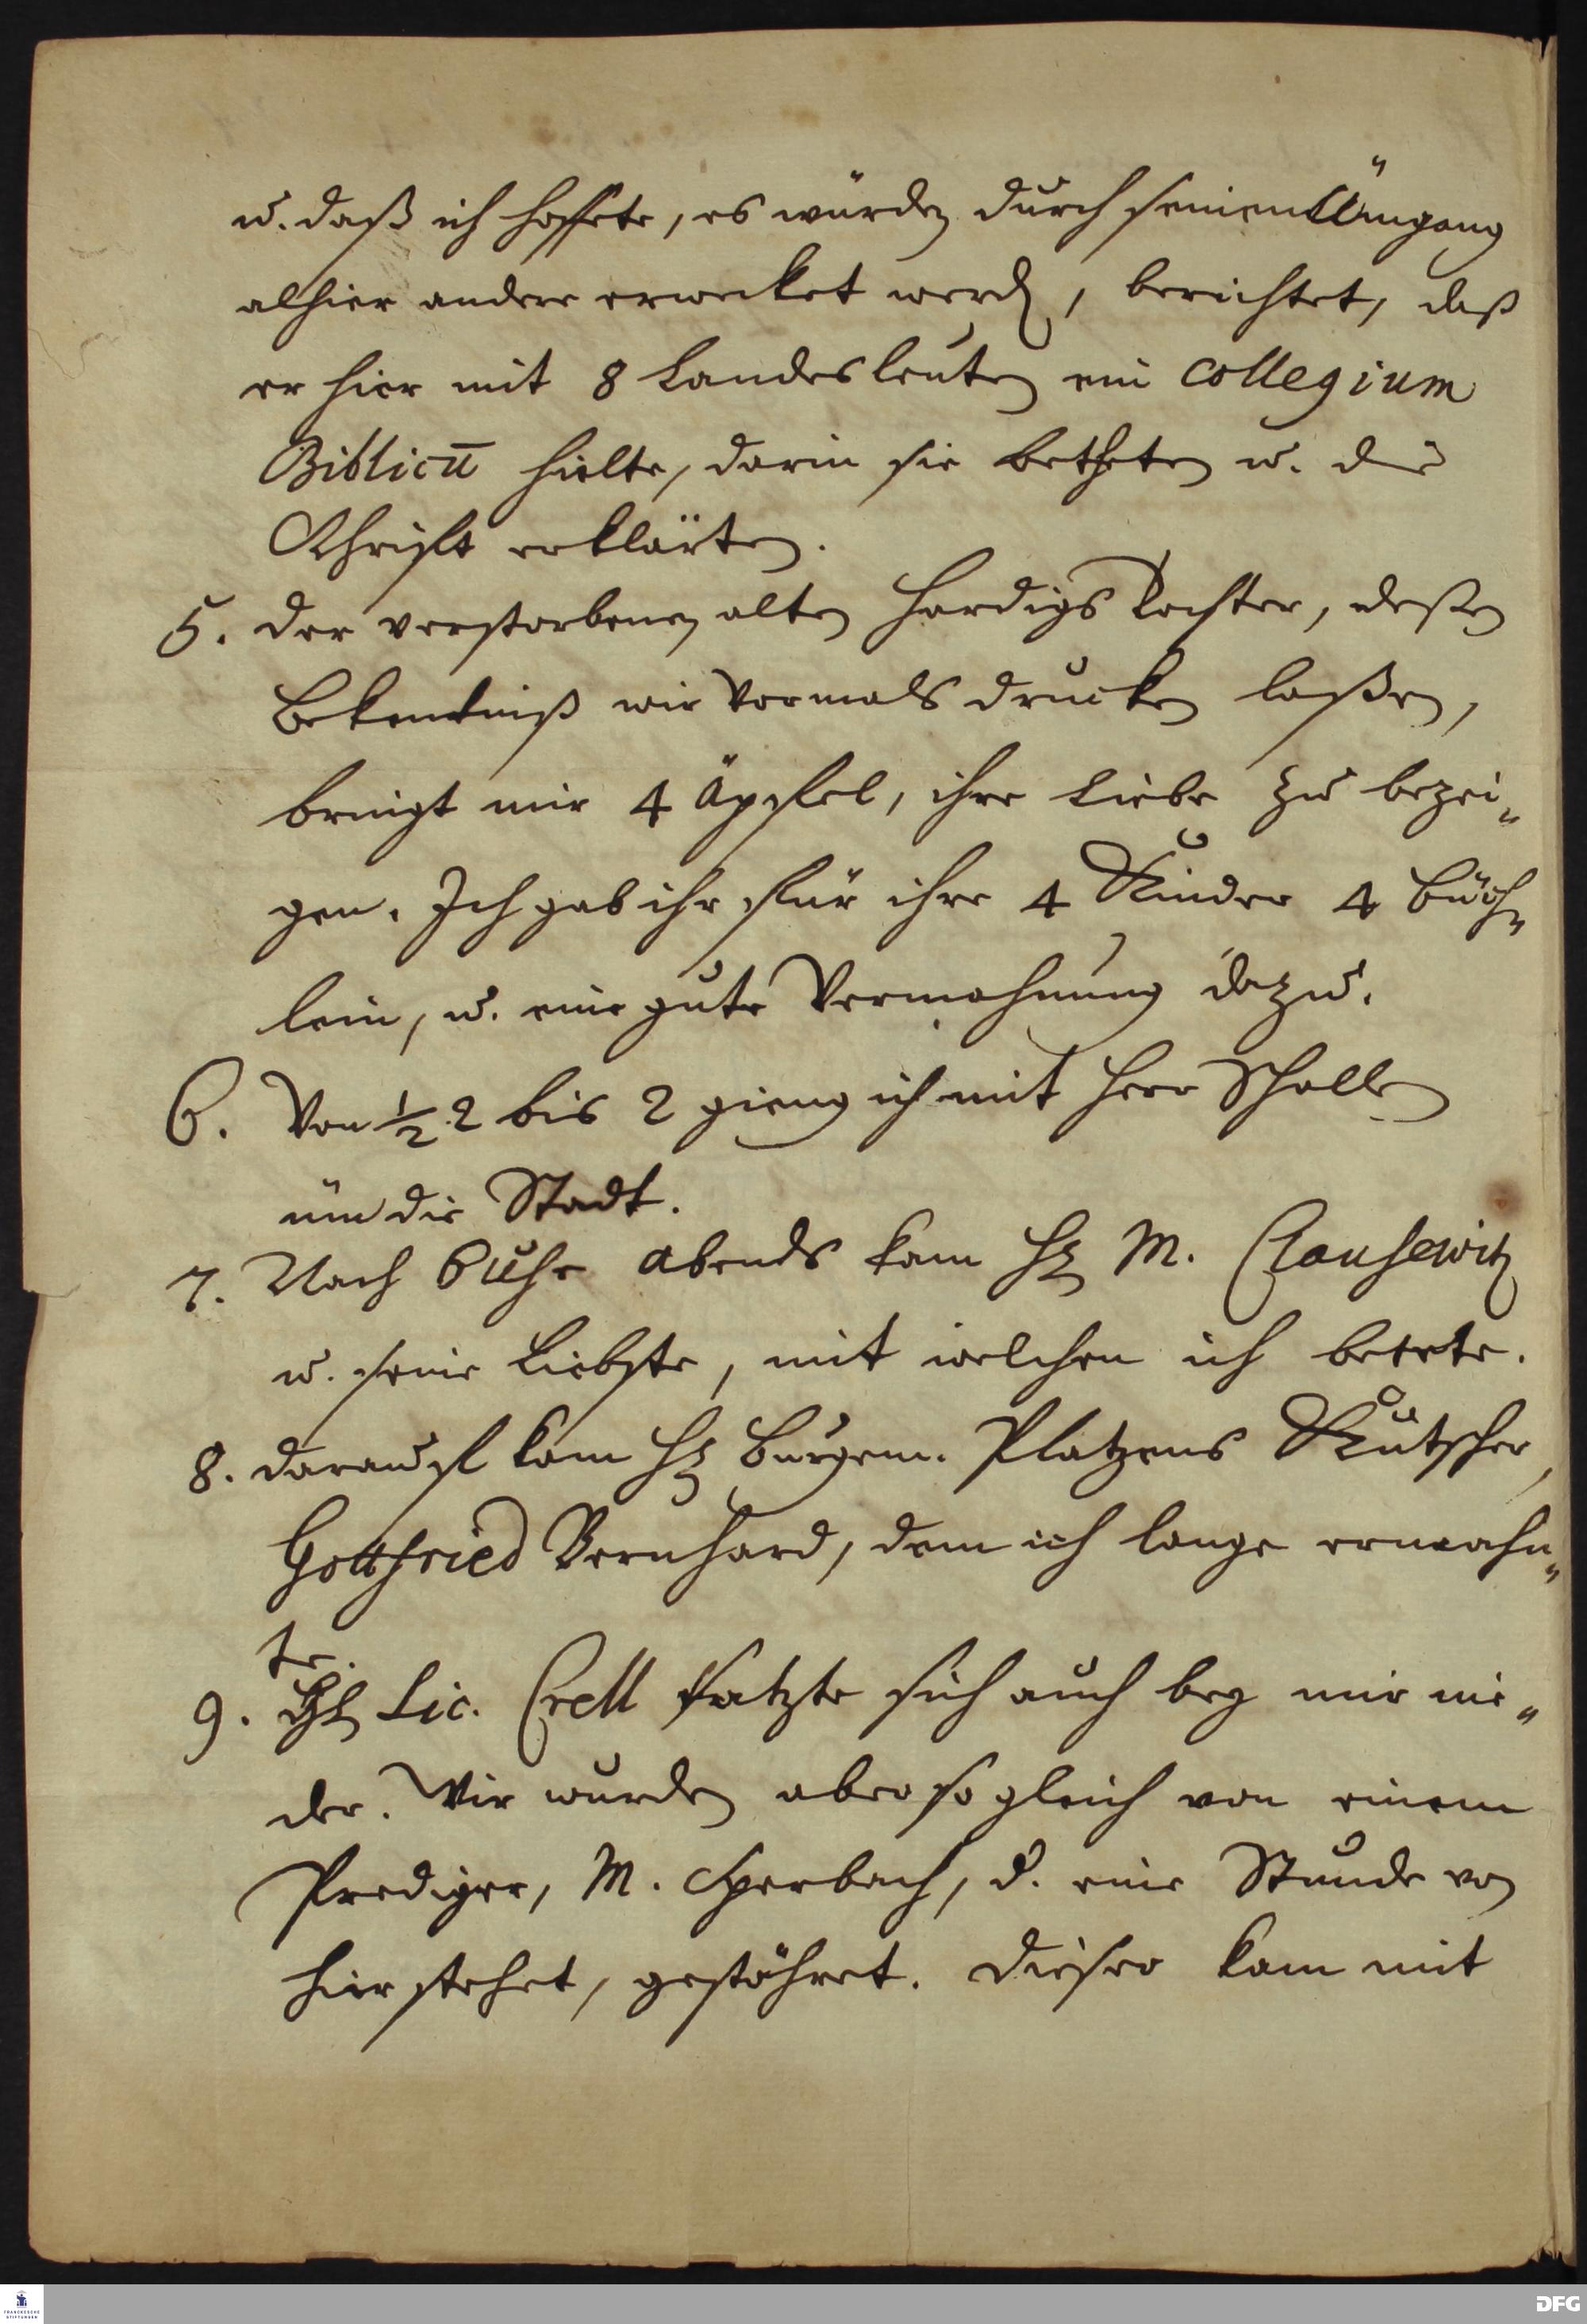 u. daß ich hoffete, es würden durch seinen Umgang
alhier andere erwecket werden, berichtet, daß
er hier mit 8 Landesleuten ein Collegium
Biblicū hielte, darin sie betheten u. die
Schrift erklärten.
5. Der verstorbenen alten Hardigs Tochter, deßen
Bekentniß wir vormals drucken laßen,
bringt mir 4 Äpffel, ihre Liebe zu bezei„
gen. Ich gab ihr für ihre 4 Kinder 4 Büch„
lein, u. eine gute Vermahnung dazu.
6. Von ½ 2 bis 2 gieng ich mit Herr Schallen
üm die Stadt.
7. Nach 6 Uhr abends kam H. M. Clausewitz
u. seine Liebste, mit welchen ich betete.
8. Darauf kam H. Bürgem. Platzens Kutscher,
Gottfried Bernhard, dem ich lange ermahn„
te.
9. H. Lic. Crell satzte sich auch bey mir nie„
der. Wir wurden aber so gleich von einem
Prediger, M. Sperbach, d. eine Stunde von
hier stehet, gestöhret. Dieser kam mit
FRANCKESCHE STIFTUNGEN
DFG